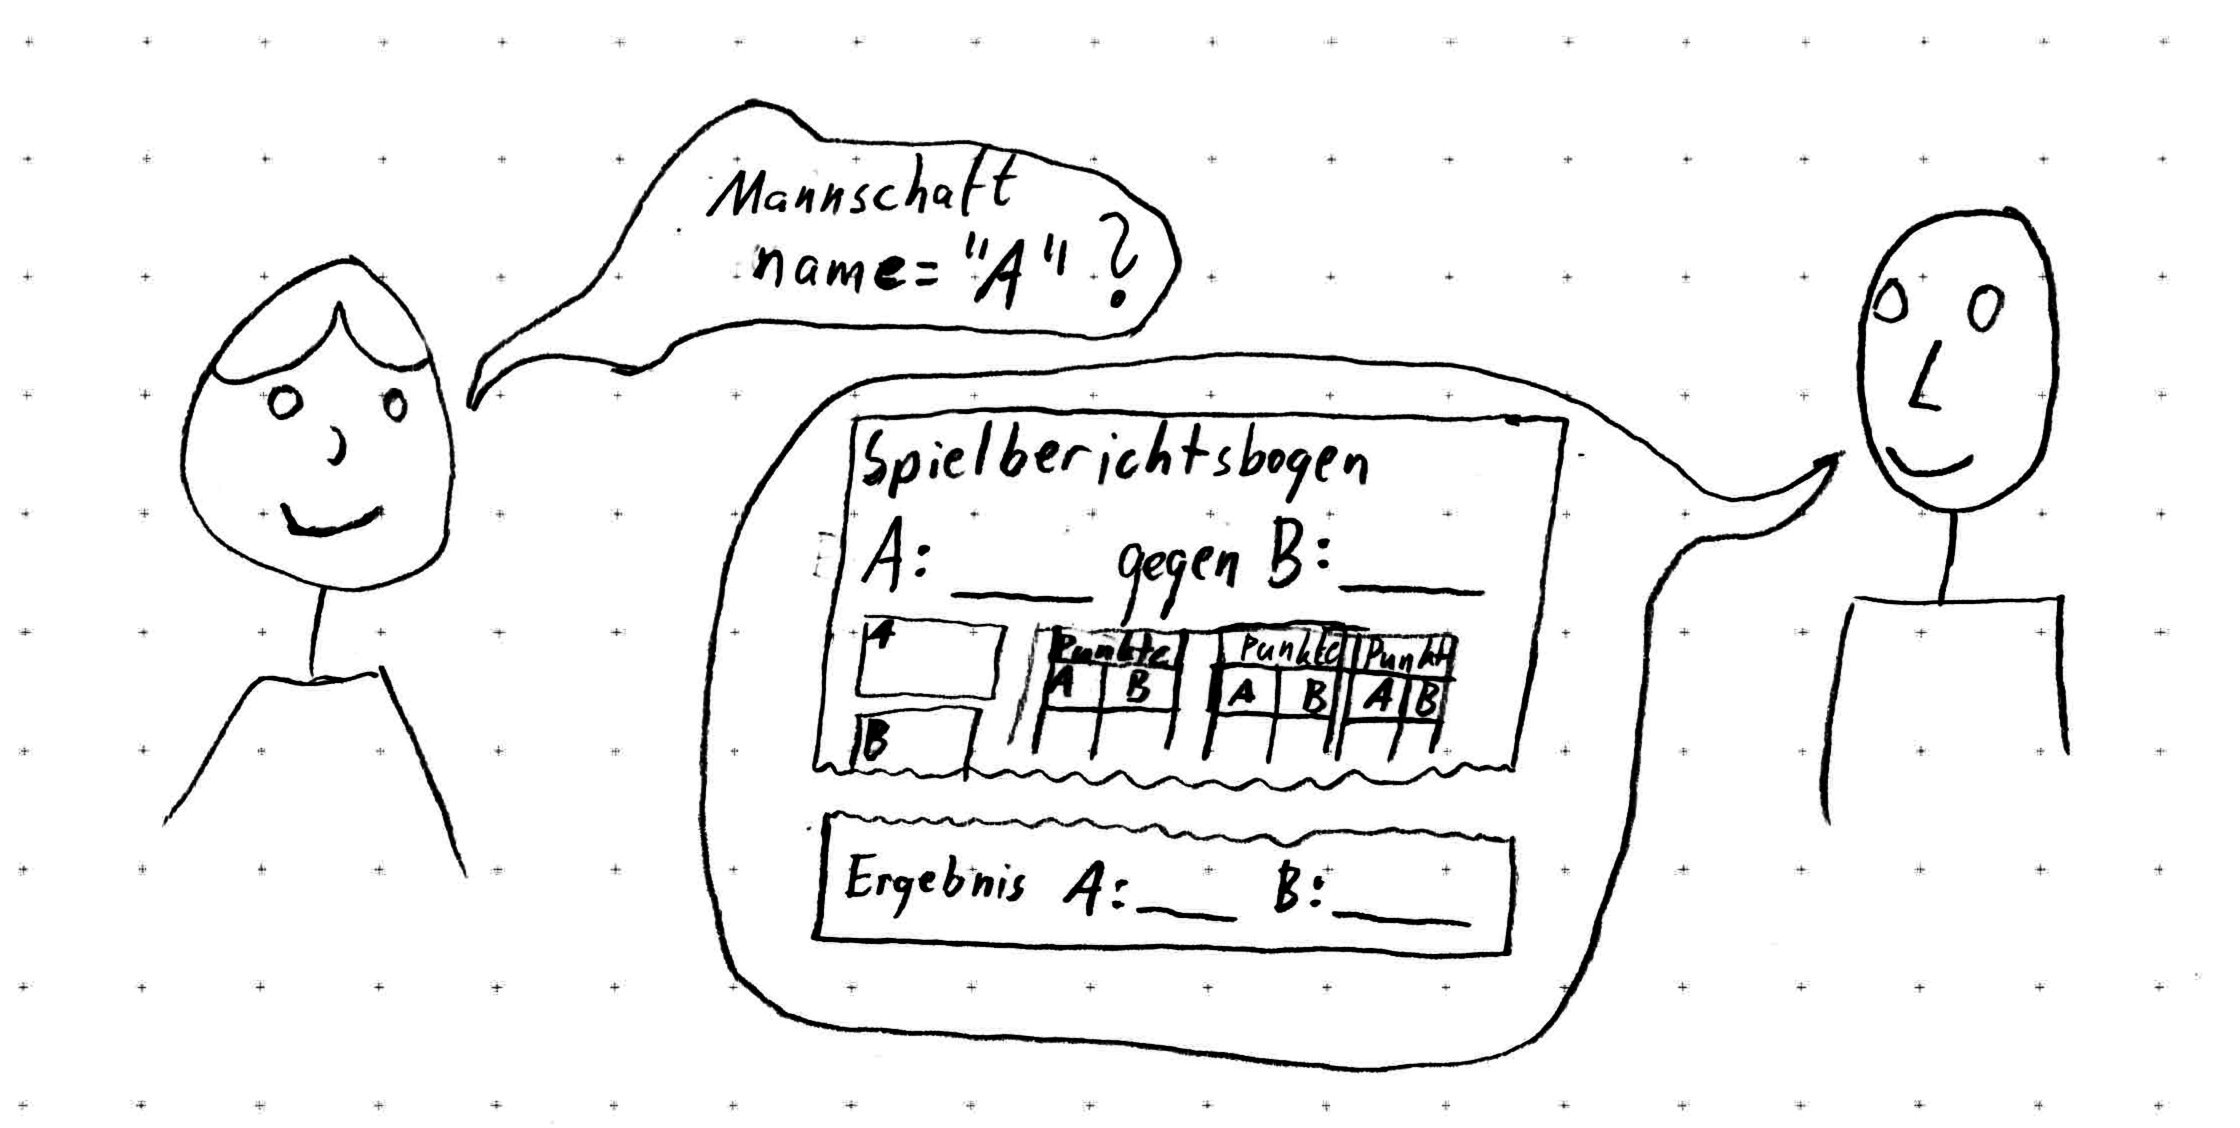 Mannschaft
name="A"?
Spielberichtsbogen
A: ____ gegen B: ____
A
Punkte Punkte Punkt
A B A B A B
B
Ergebnis A: ___ B: ____